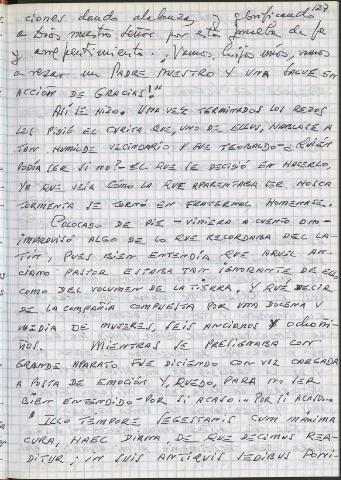 127
ciones dando alabanzas y glorificando
a Dios nuestro Señor por esta prueba de fe
y arrepentimiento. ¡Vamos, hijos míos, vamos
a rezar un PADRE NUESTRO Y UNA SALVE EN
ACCIÓN DE GRACIAS!"
ASÍ SE HIZO. UNA VEZ TERMINADOS LOS REZOS
LES PIDIÓ EL CURITA QUE, UNO DE ELLOS, HABLASE A
TAN HUMILDE VECINDARIO Y FUE TEOBALDO - ¿QUIÉN
PODÍA SER SI NO? - EL QUE SE DECIDIÓ EN HACERLO,
YA QUE VEÍA CÓMO LA QUE APARENTABA SER HOSCA
TORMENTA SE TORNÓ EN FRATERNAL HOMENAJE.
COLOCADO DE PIE - VINIERA A CUENTO O NO -
IMPROVISÓ ALGO DE LO QUE RECORDABA DEL LA-
TÍN, PUES BIEN ENTENDÍA QUE AQUEL AN-
CIANO PASTOR ESTABA TAN IGNORANTE DE ELLO
COMO DEL VOLUMEN DE LA TIERRA. Y QUÉ DECIR
DE LA COMPAÑÍA COMPUESTA POR UNA DOCENA Y
MEDIA DE MUJERES, SEIS ANCIANOS Y OCHO NI-
ÑOS. MIENTRAS SE PERSIGNABA CON
GRANDE APARATO FUE DICIENDO CON VOZ CARGADA
A POSTA DE EMOCIÓN Y, QUEDO, PARA NO SER
BIEN ENTENDIDO - POR SI ACASO... POR SI ACASO...
"ILLO TEMPORE SEGESTANIS CUM MÁXIMA
CURA, HAEC DIRMA, DE QUE DECIMUS REA-
DITUR; IN SUIS ANTIQUIS SEDIBUS PONI-